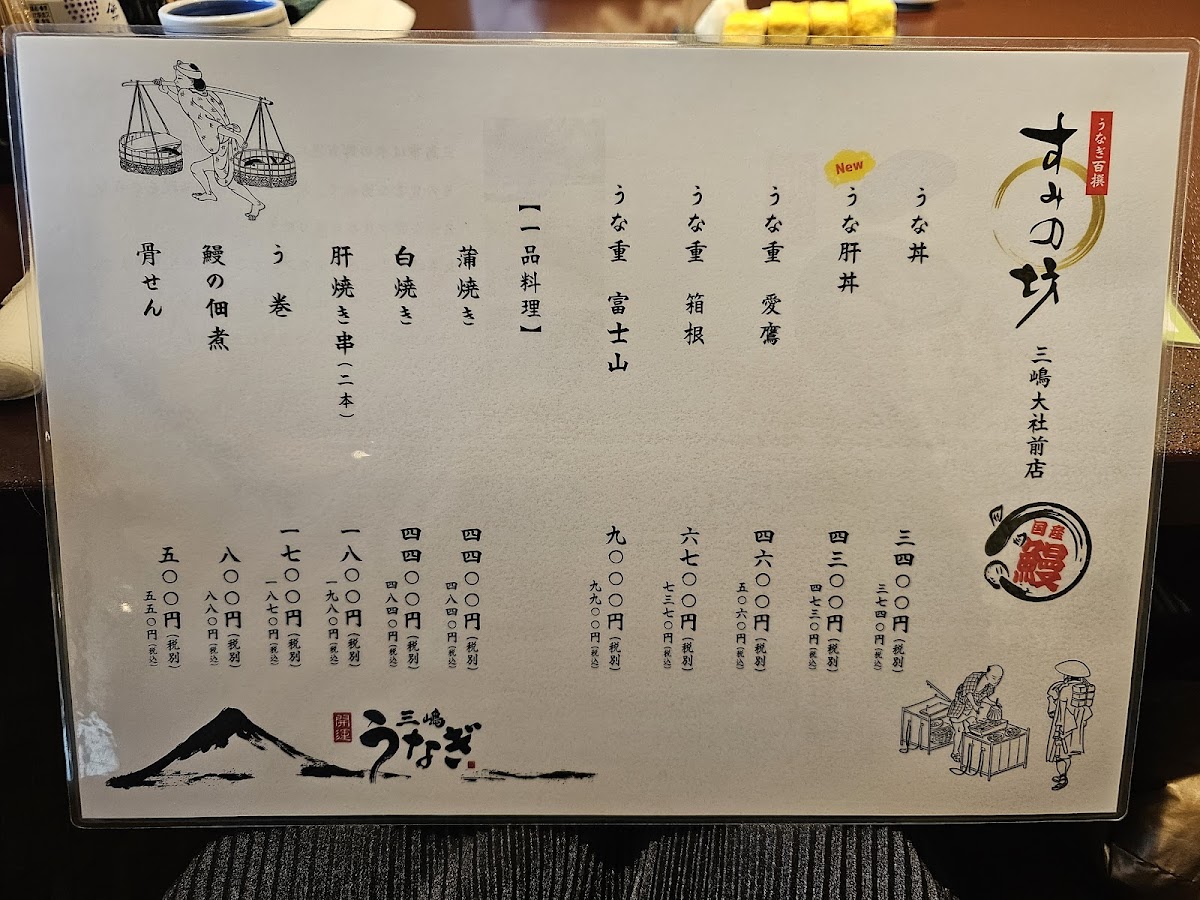 うなぎ百撰
すみの坊
三嶋大社前店
国産
鰻
うな丼
三四〇〇円(税別)
三七四〇円(税込)
New
うな肝丼
四三〇〇円(税別)
四七三〇円(税込)
うな重 愛鷹
四六〇〇円(税別)
五〇六〇円(税込)
うな重 箱根
六七〇〇円(税別)
七三七〇円(税込)
うな重 富士山
九〇〇〇円(税別)
九九〇〇円(税込)
【一品料理】
蒲焼き
四四〇〇円(税別)
四八四〇円(税込)
白焼き
四四〇〇円(税別)
四八四〇円(税込)
肝焼き串(二本)
一八〇〇円(税別)
一九八〇円(税込)
う巻
一七〇〇円(税別)
一八七〇円(税込)
鰻の佃煮
八〇〇円(税別)
八八〇円(税込)
骨せん
五〇〇円(税別)
五五〇円(税込)
開運
三嶋
うなぎ